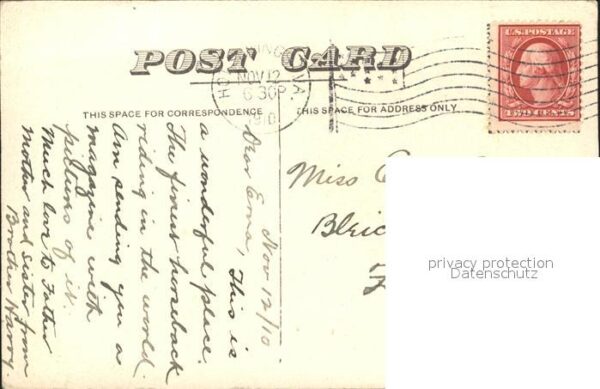 POST CARD
HOT SPRINGS VA.
NOV 12
6 30 P
1910
U.S. POSTAGE
TWO CENTS
THIS SPACE FOR CORRESPONDENCE
THIS SPACE FOR ADDRESS ONLY.
Nov 12/10
Dear Erna, This is
a wonderful place.
The finest horseback
riding in the world.
Am sending you a
magazine with
pictures of it.
Much love to Father
Mother and Sister from
Brother Harry.
Miss
privacy protection
Datenschutz